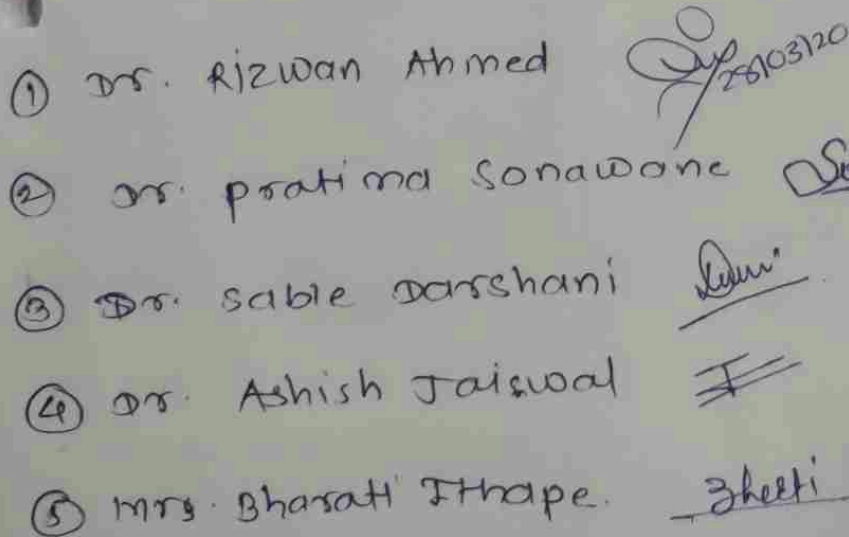 ① Dr. Rizwan Ahmed 28/03/20
② Dr. pratima sonawane
③ Dr. sable Darshani
④ Dr. Ashish Jaiswal
⑤ mrs. Bharati Ithape.